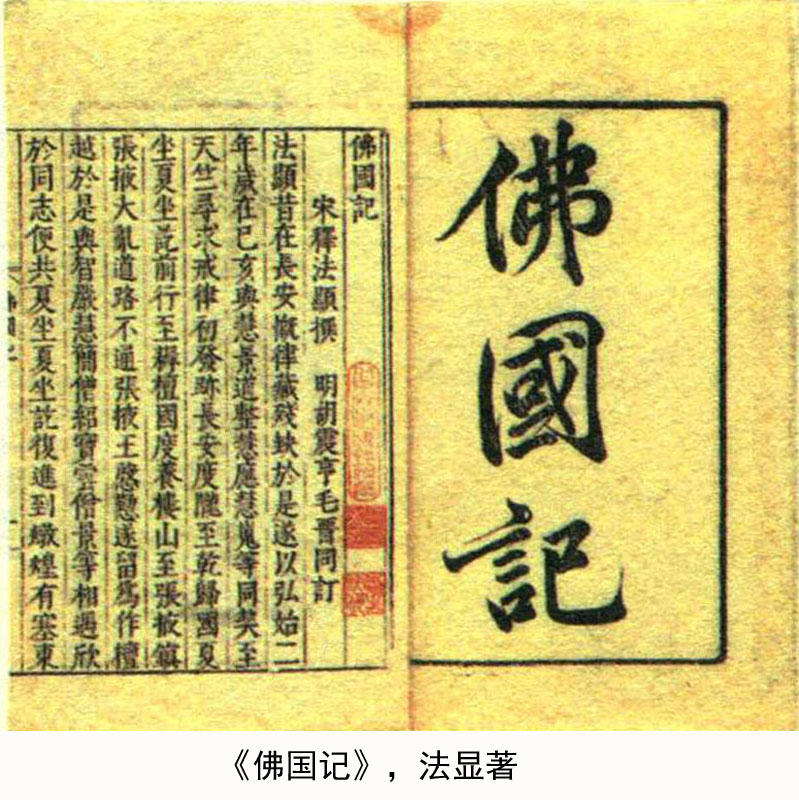 佛國記
佛國記
宋釋法顯撰　明胡震亨毛晉同訂
法顯昔在長安慨律藏殘缺於是遂以弘始二
年歲在已亥與慧景道整慧應慧嵬等同契至
天竺尋求戒律初發跡長安度隴至乾歸國夏
坐夏坐訖前行至耨檀國度養樓山至張掖鎮
張掖大亂道路不通張掖王慇懃遂留爲作檀
越於是與智嚴慧簡僧紹寶雲僧景等相遇欣
於同志便共夏坐夏坐訖復進到燉煌有塞東
《佛国记》，法显著